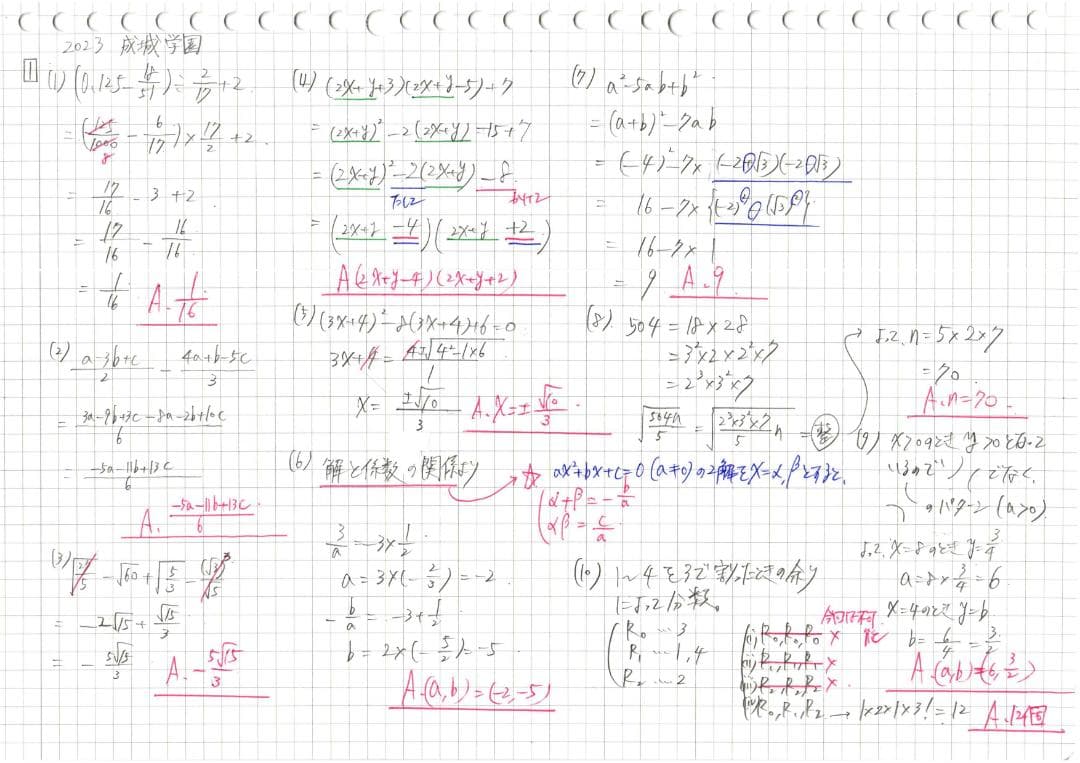 2023 成城学園
1
(1) (0.125 - 18/51) ÷ 2/17 + 2
= (125/1000 - 6/17) × 17/2 + 2
8
= 17/16 - 3 + 2
= 17/16 - 16/16
= 1/16 A. 1/16
(2) (a-3b+c)/2 - (4a+b-5c)/3
= (3a-9b+3c-8a-2b+10c)/6
= (-5a-11b+13c)/6
A. (-5a-11b+13c)/6
- √60 + √(5/3) - (√3)³/√5
= -2√15 + √15/3
= - 5√15/3 A. - 5√15/3
(4) (2x+y+3)(2x+y-5)+7
= (2x+y)² - 2(2x+y) - 15 + 7
= (2x+y)² - 2(2x+y) - 8
たして2 かけて2
= (2x+y -4)(2x+y +2)
A (2x+y-4)(2x+y+2)
(5) (3x+4)² - 8(3x+4) + 6 = 0
3x+4 = (4±√(4²-1×6))/1
x = ±√10/3 A. x = ± √10/3
(6) 解と係数の関係より
☆ ax²+bx+c=0 (a≠0) の2解をx=α,βとすると、
α+β = - b/a
αβ = c/a
3/a = -3 × 1/2
a = 3×(- 2/3) = -2
- b/a = -3 + 1/2
b = 2×(- 5/2) = -5
A. (a,b) = (-2,-5)
(7) a²-5ab+b²
= (a+b)² - 7ab
= (-4)² - 7× (-2+√3)(-2-√3)
= 16 - 7× {(-2)² - (√3)²}
= 16 - 7×1
= 9 A. 9
(8) 504 = 18×28
= 3²×2×2²×7
= 2³×3²×7
√(504n/5) = √(2³×3²×7/5 n) = 整
よって、n = 5×2×7
= 70
A. n=70
(9) x>0のとき y>0となって
いるので でなく、
のパターン (a>0)
よって、x=8のとき y=3/4
a = 8 × 3/4 = 6
x=4のとき y=b
b = 6/4 = 3/2
A. (a,b) = (6, 3/2)
(10) 1〜4を3で割ったときの余り
によって分類。
R₀ … 3
R₁ … 1,4
R₂ … 2
(i) R₀,R₀,R₀ ×
(ii) R₁,R₁,R₁ ×
(iii) R₂,R₂,R₂ ×
(iv) R₀,R₁,R₂ → 1×2×1×3! = 12 A. 12個